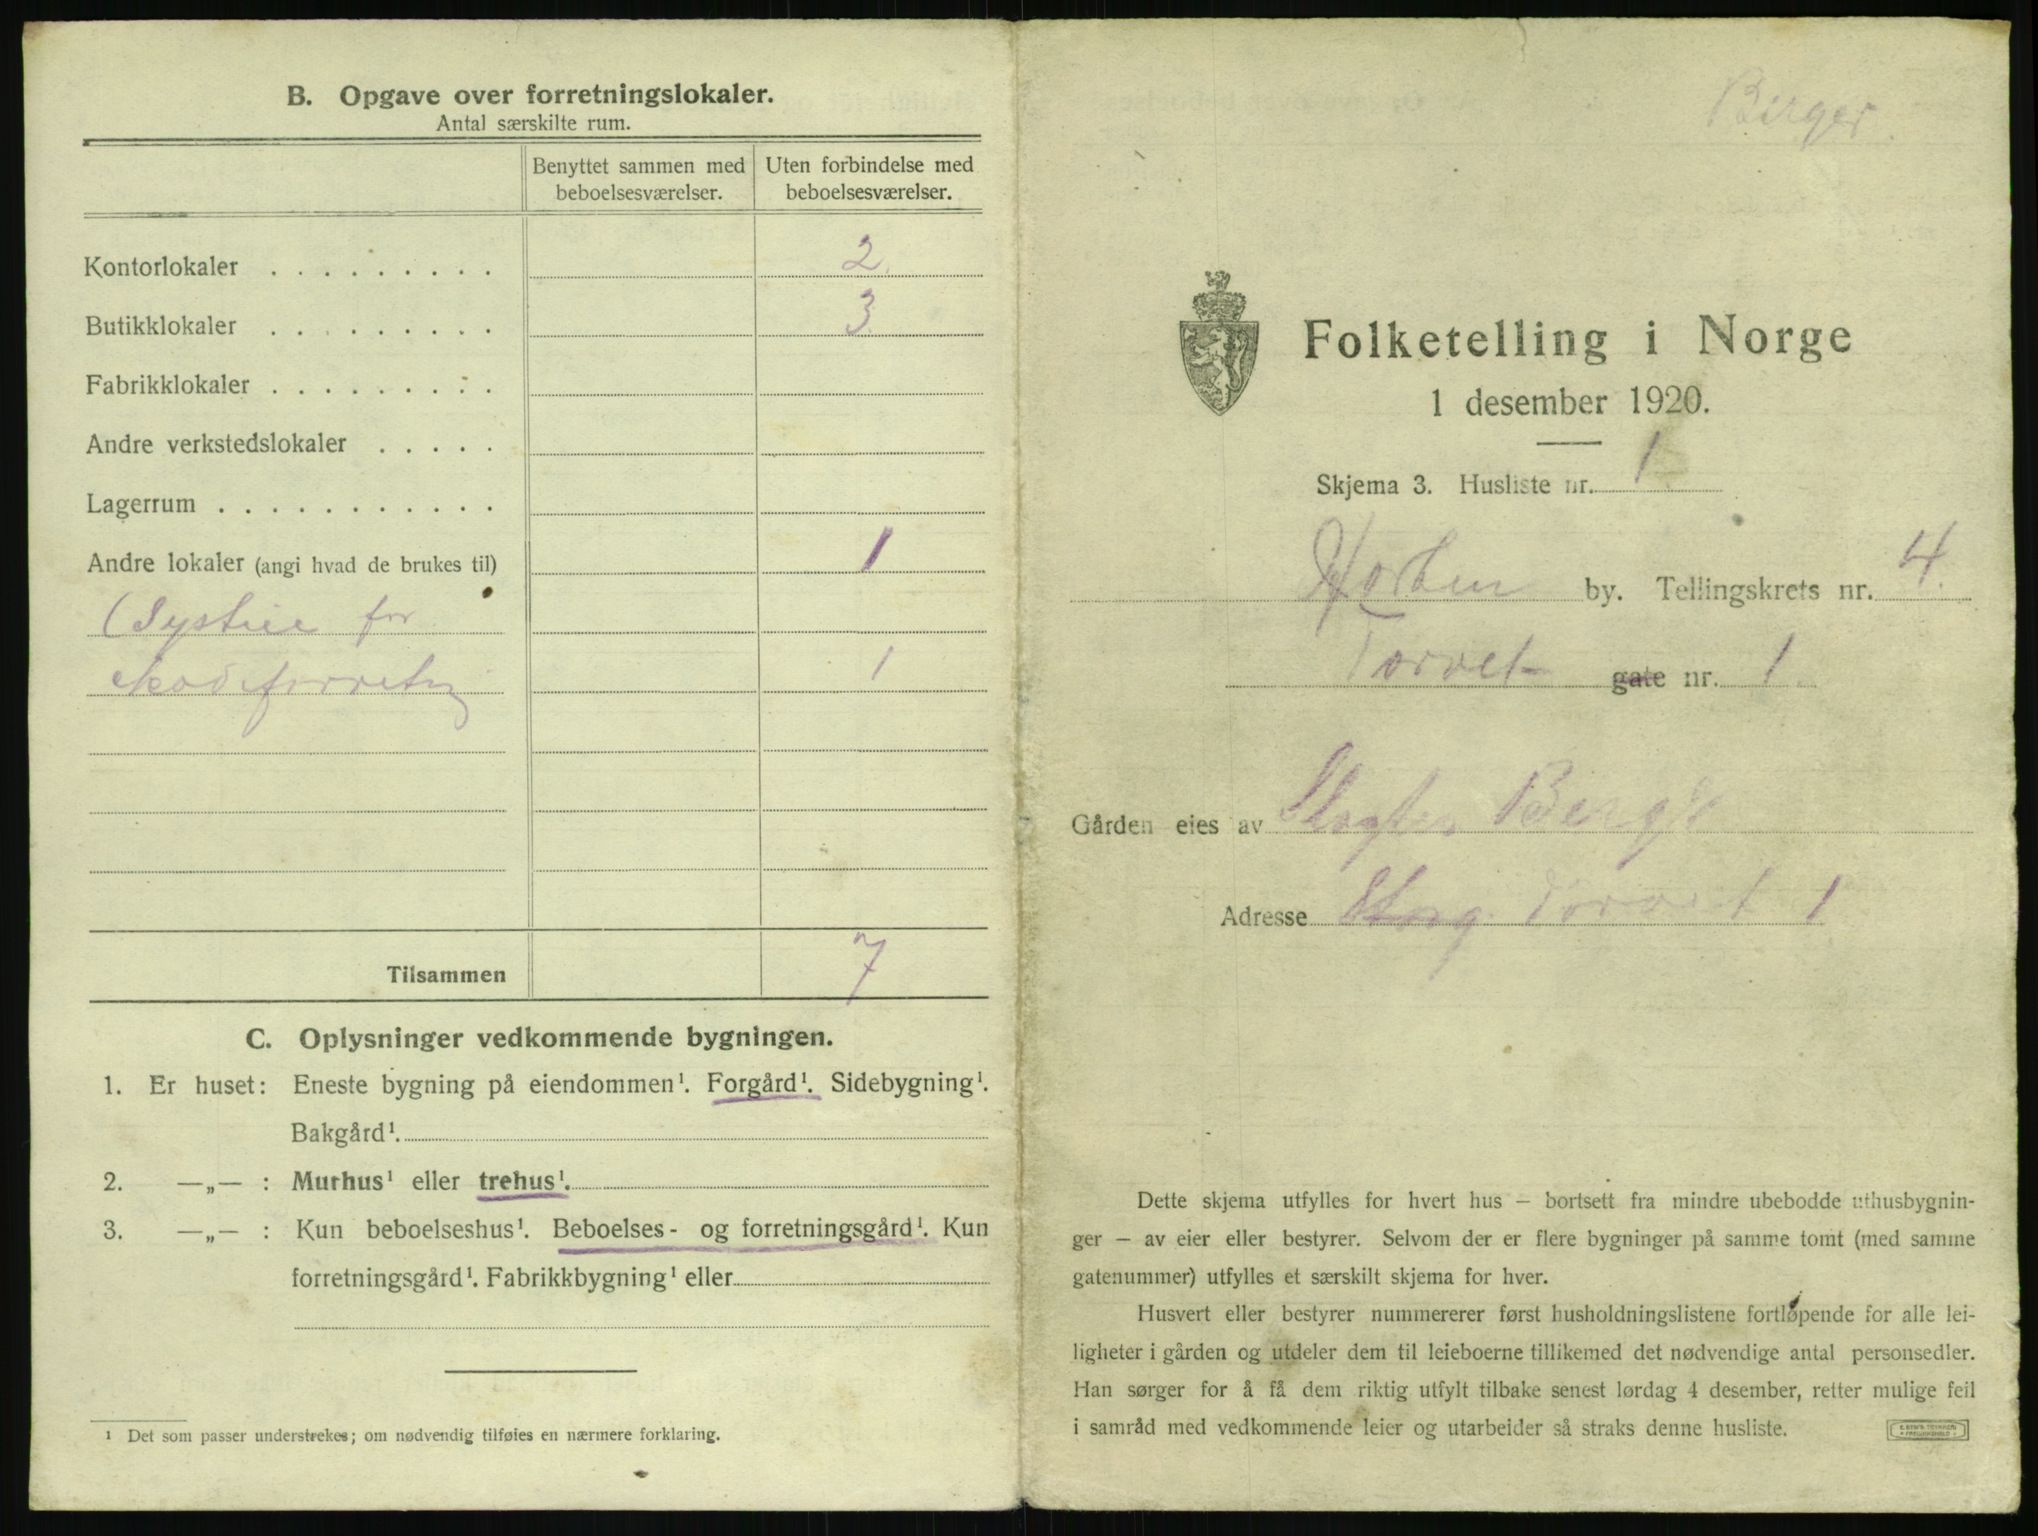 B. Opgave over forretningslokaler.
Antal særskilte rum.
Benyttet sammen med beboelsesværelser.
Uten forbindelse med beboelsesværelser.
Kontorlokaler . . . . . . . . . 2.
Butikklokaler . . . . . . . . . 3.
Fabrikklokaler . . . . . . . . .
Andre verkstedslokaler . . . . .
Lagerrum . . . . . . . . . . .
Andre lokaler (angi hvad de brukes til) 1
(Systue for
1
Tilsammen 7
C. Oplysninger vedkommende bygningen.
1. Er huset: Eneste bygning på eiendommen¹. Forgård¹. Sidebygning¹.
Bakgård¹.
2. —„— : Murhus¹ eller trehus¹.
3. —„— : Kun beboelseshus¹. Beboelses- og forretningsgård¹. Kun
forretningsgård¹. Fabrikkbygning¹ eller
¹ Det som passer understrekes; om nødvendig tilføies en nærmere forklaring.
Berger.
Folketelling i Norge
1 desember 1920.
Skjema 3. Husliste nr. 1
Horten by. Tellingskrets nr. 4.
Torvet gate nr. 1.
Gården eies av Slagter Berge
Adresse Torvet 1
Dette skjema utfylles for hvert hus — bortsett fra mindre ubebodde uthusbygnin-
ger — av eier eller bestyrer. Selvom der er flere bygninger på samme tomt (med samme
gatenummer) utfylles et særskilt skjema for hver.
Husvert eller bestyrer nummererer først husholdningslistene fortløpende for alle lei-
ligheter i gården og utdeler dem til leieboerne tillikemed det nødvendige antal personsedler.
Han sørger for å få dem riktig utfylt tilbake senest lørdag 4 desember, retter mulige feil
i samråd med vedkommende leier og utarbeider så straks denne husliste.